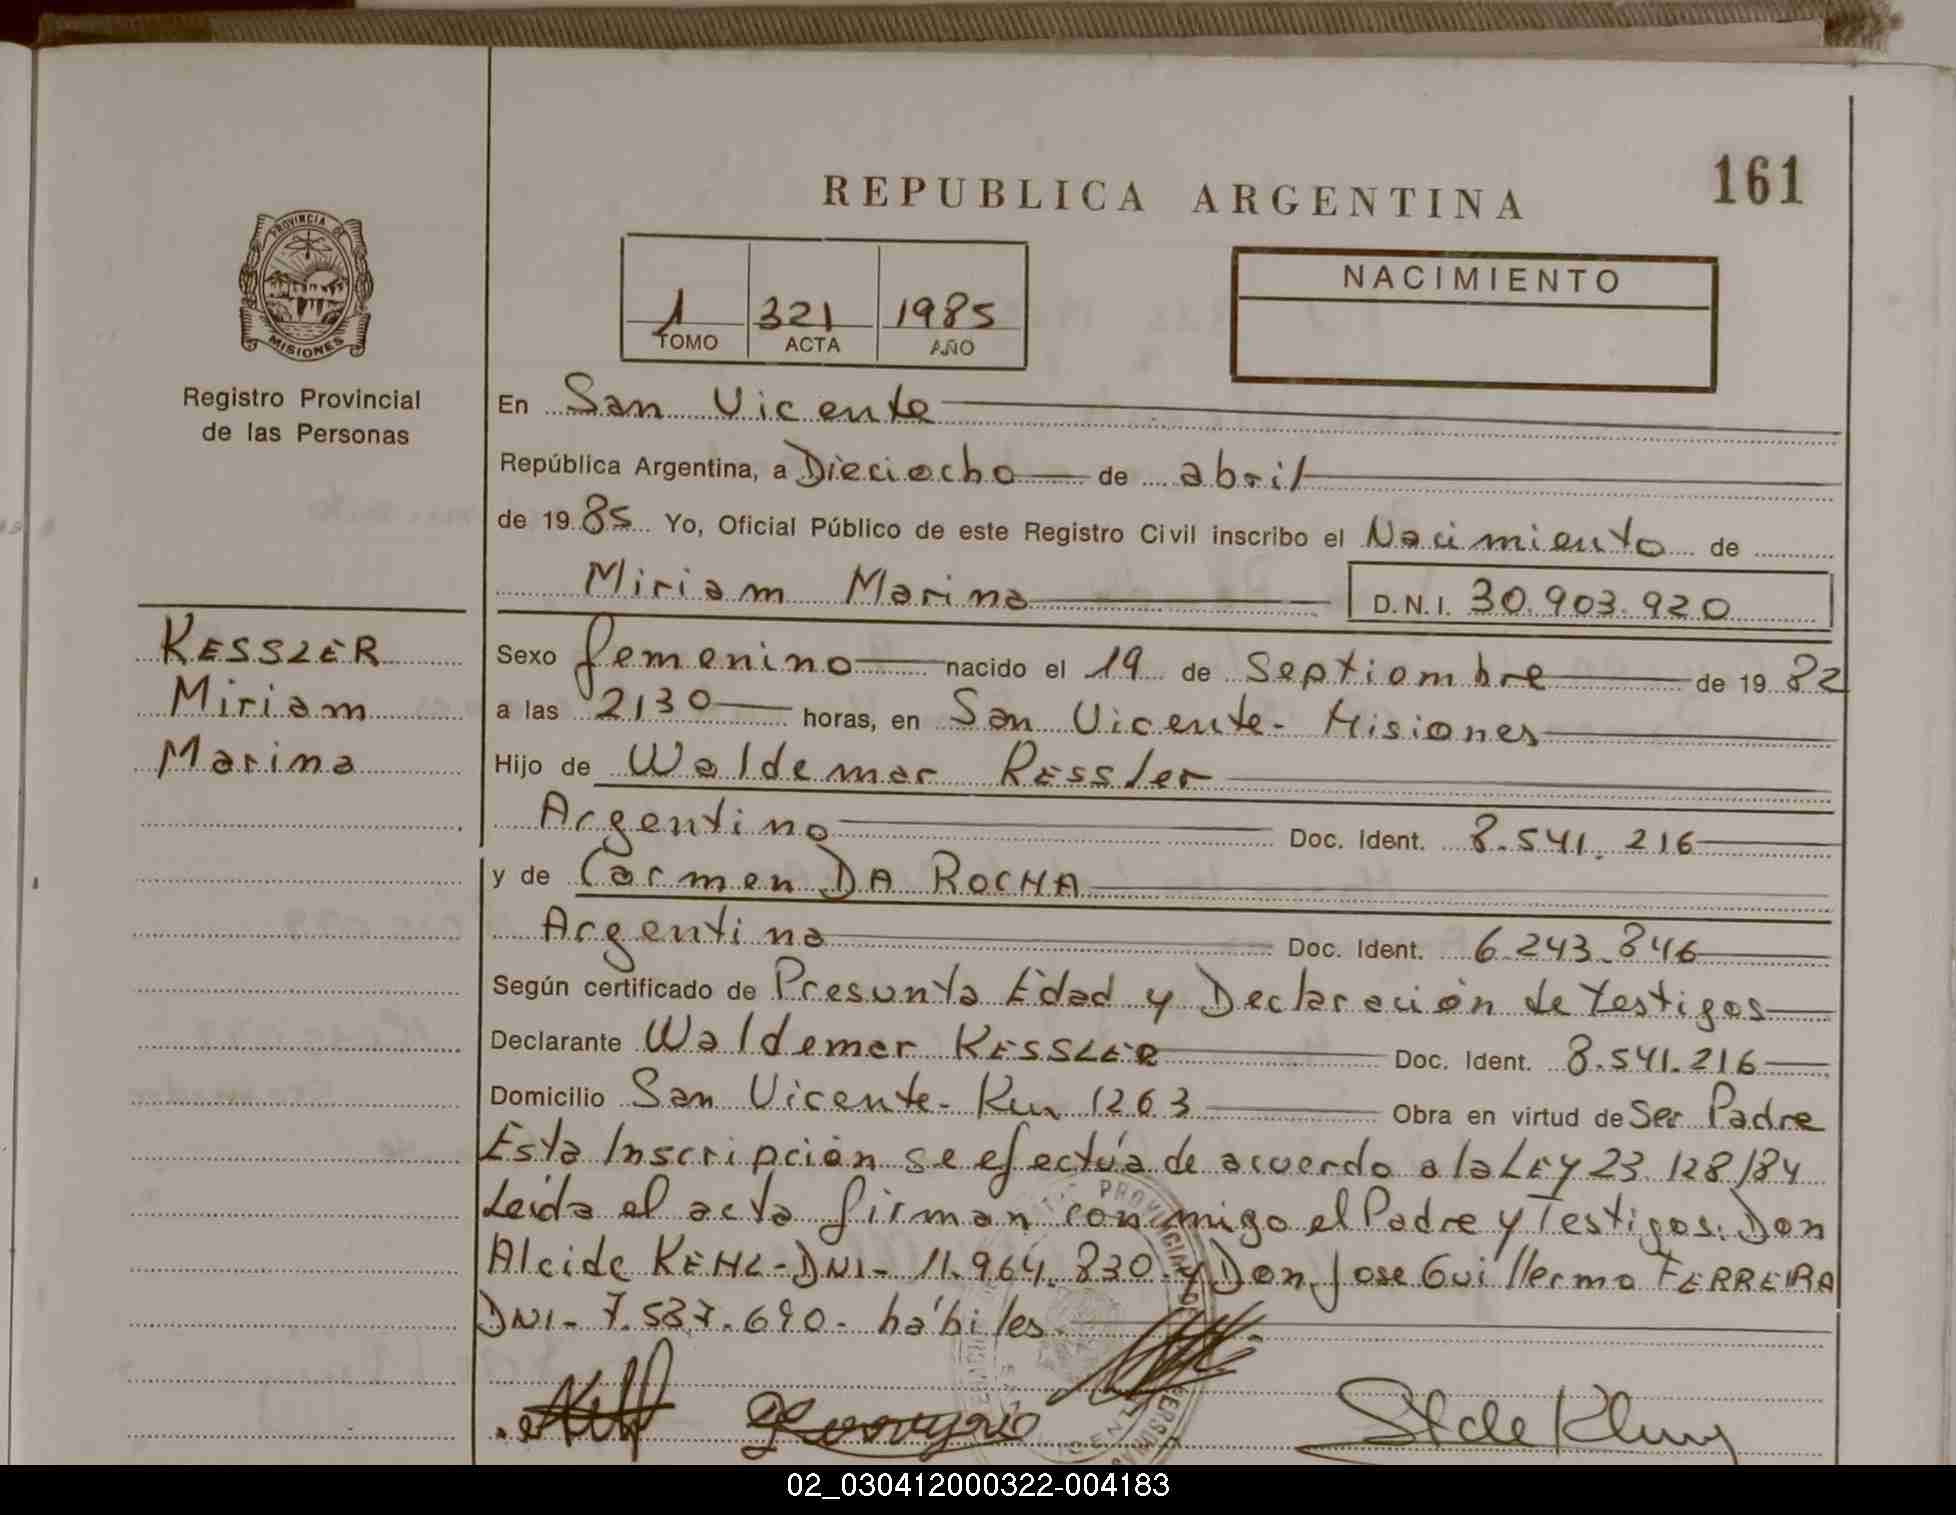 REPUBLICA ARGENTINA
161
PROVINCIA DE
MISIONES
Registro Provincial
de las Personas
1 321 1985
TOMO ACTA AÑO
NACIMIENTO
En San Vicente
República Argentina, a Dieciocho de abril
de 1985 Yo, Oficial Público de este Registro Civil inscribo el Nacimiento de
Miriam Marina D.N.I. 30.903.920
KESSLER
Miriam
Marina
Sexo femenino nacido el 19 de Septiembre de 1982
a las 2130 horas, en San Vicente - Misiones
Hijo de Waldemar KESSler
Argentino Doc. Ident. 8.541.216
y de Carmen DA ROCHA
Argentina Doc. Ident. 6.243.846
Según certificado de Presunta Edad y Declaración de Testigos
Declarante Waldemar KESSLER Doc. Ident. 8.541.216
Domicilio San Vicente - Km 1263 Obra en virtud de Ser Padre
Esta Inscripción se efectúa de acuerdo a la LEY 23.128/84
Leída el acta firman conmigo el Padre y Testigos: Don
Alcide KEHL - DNI - 11.964.830 - y Don Jose Guillermo FERREIRA
DNI - 7.587.690 - hábiles
02_030412000322-004183